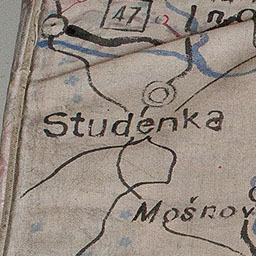 47
Studénka
Mošnov